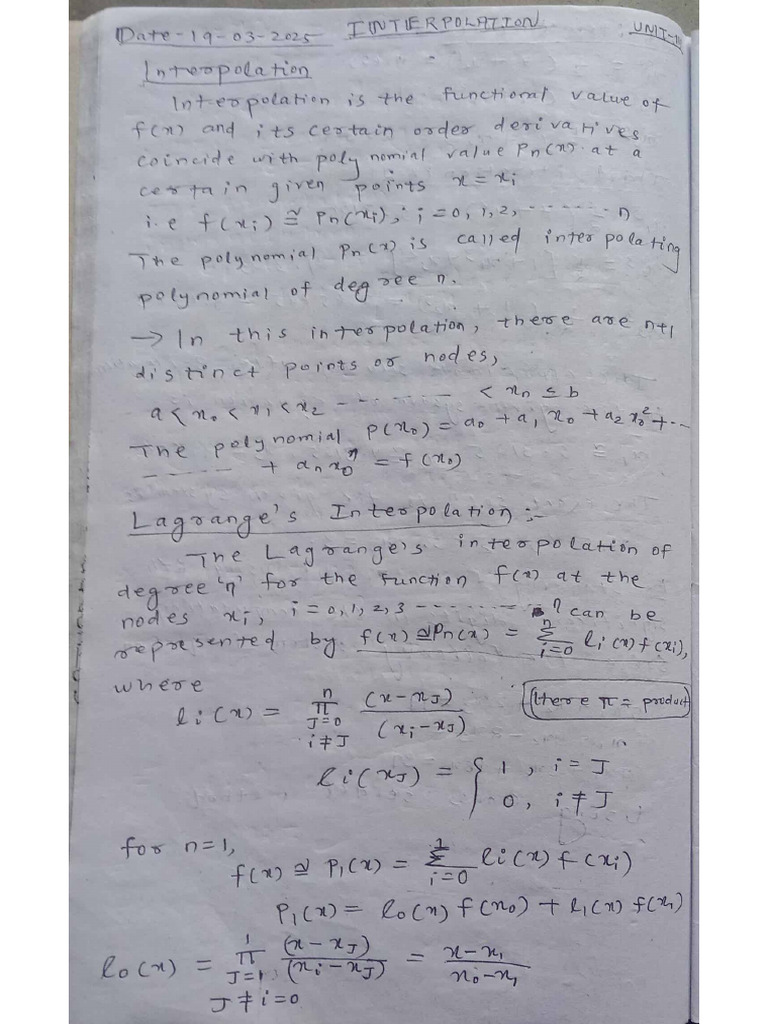 Date-19-03-2025 INTERPOLATION UNIT-
Interpolation
Interpolation is the functional value of
f(x) and its certain order derivatives
coincide with polynomial value Pn(x) at a
certain given points x = xi
i.e f(xi) ≅ Pn(xi), i = 0, 1, 2, ------- n
The polynomial Pn(x) is called interpolating
polynomial of degree n.
→ In this interpolation, there are n+1
distinct points or nodes,
a < x₀ < x₁ < x₂ -------- < xn ≤ b
The polynomial P(x₀) = a₀ + a₁ x₀ + a₂ x₀² + --
------ + an x₀ⁿ = f(x₀)
Lagrange's Interpolation :-
The Lagrange's interpolation of
degree 'n' for the function f(x) at the
nodes xi, i = 0, 1, 2, 3 -------- n can be
represented by f(x) ≅ Pn(x) = Σ_{i=0}^{n} li(x) f(xi),
where
li(x) = π_{J=0, i≠J}^{n} (x-xJ)/(xi-xJ) (Here π = product)
li(xJ) = { 1, i = J
0, i ≠ J
for n=1,
f(x) ≅ P₁(x) = Σ_{i=0}^{1} li(x) f(xi)
P₁(x) = l₀(x) f(x₀) + l₁(x) f(x₁)
l₀(x) = π_{J=1, J≠i=0}^{1} (x-xJ)/(xi-xJ) = x-x₁/x₀-x₁